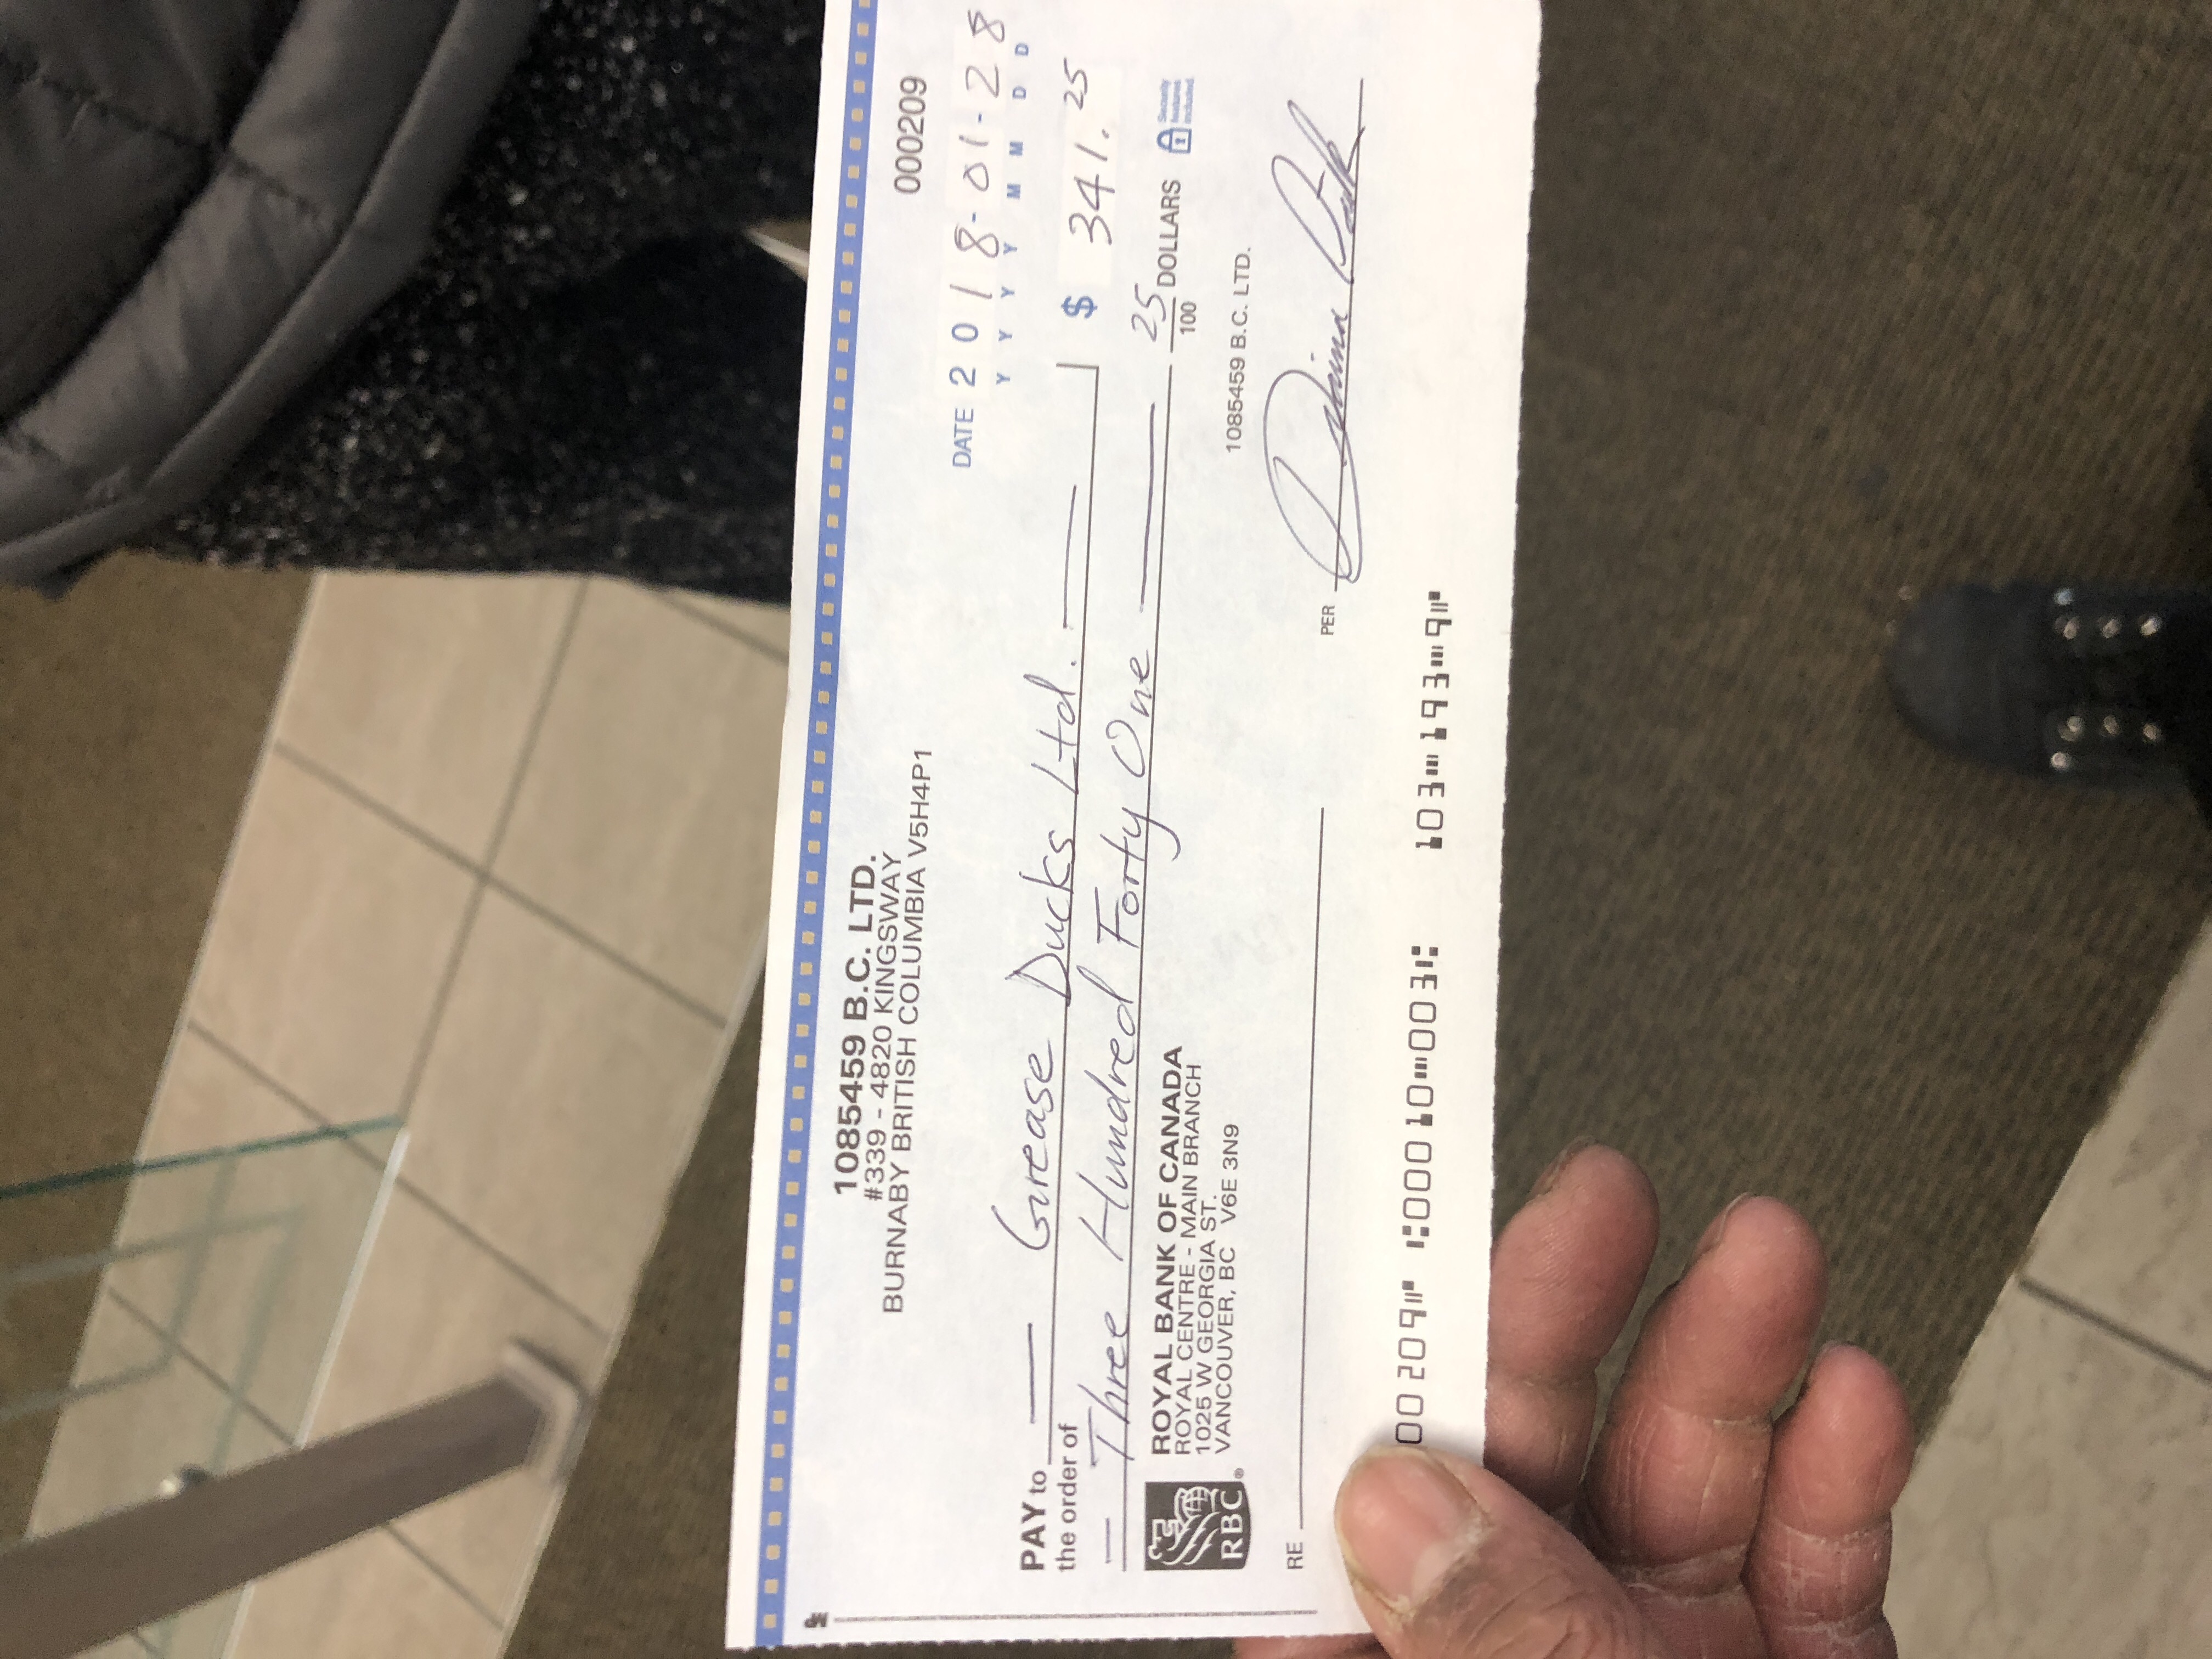 MP
1085459 B.C. LTD.
#339 - 4820 KINGSWAY
BURNABY BRITISH COLUMBIA V5H4P1
000209
DATE 2018-01-28
Y Y Y Y M M D D
PAY to the order of
Grease Ducks Ltd.
$ 341.25
Three Hundred Forty One 25/100 DOLLARS
Security features included.
RBC®
ROYAL BANK OF CANADA
ROYAL CENTRE - MAIN BRANCH
1025 W GEORGIA ST.
VANCOUVER, BC V6E 3N9
1085459 B.C. LTD.
RE
PER
00209⑈ ⑆00010⑉003⑆ 103⑉193⑉9⑈